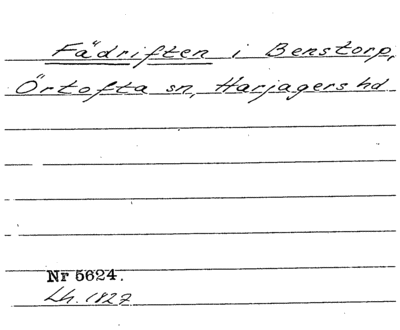 Fädriften i Benstorp,
Örtofta sn, Harjagers hd
Nr 5624.
Lh. 1827